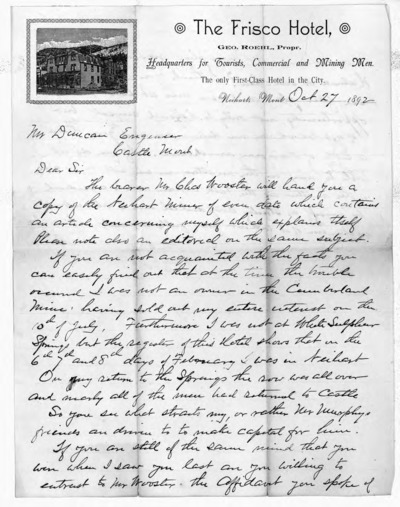 The Frisco Hotel,
Geo. Roehl, Propr.
Headquarters for Tourists, Commercial and Mining Men.
The only First-Class Hotel in the City.
Neihart, Mont Oct 27 1892
Mr Duncan Engineer
Castle Mont
Dear Sir
The bearer Mr Chas Wooster will hand you a
copy of the Neihart Miner of even date which contains
an article concerning myself which explains itself
Please note also an editorial on the same subject.
If you are not acquainted with the facts you
can easily find out that at the time the trouble
occurred I was not an owner in the Cumberland
Mine: having sold out my entire interest on the
10th of July, Furthermore I was not at White Sulphur
Springs but the register of this Hotel shows that on the
6th 7th and 8th days of February I was in Neihart
On my return to the Springs the row was all over
and nearly all of the men had returned to Castle
So you see what straits my, or rather Mr Murphys
friends are driven to to make capital for him.
If you are still of the same mind that you
were when I saw you last are you willing to
entrust to Mr Wooster the Affidavit you spoke of